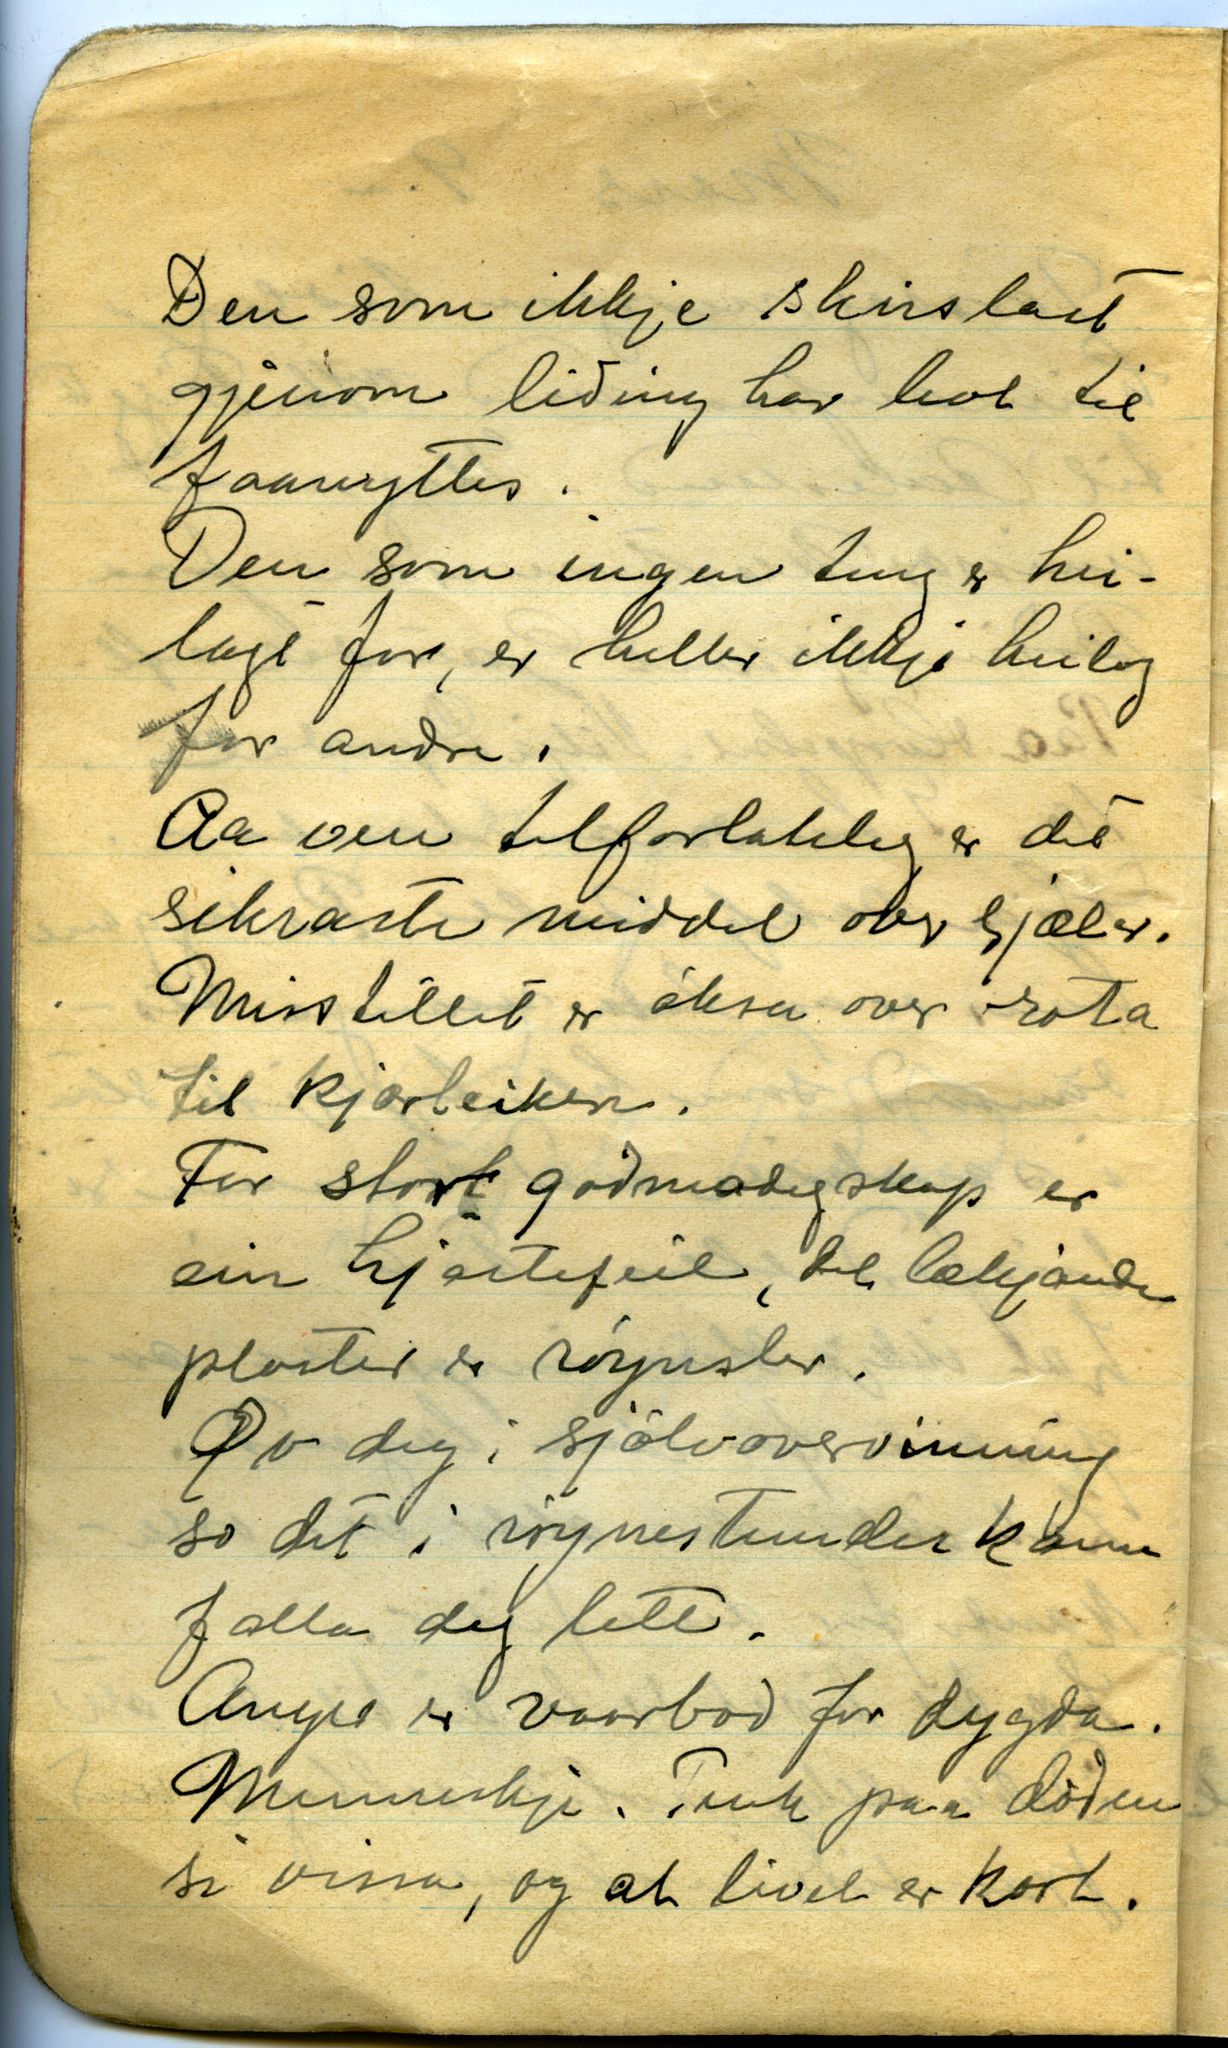 Den som ikkje skirslast
gjenom liding har levt til
faanyttes.
Den som ingen ting er hei-
lagt for, er heller ikkje heilag
for andre.
Aa vera tilforlateleg er det
sikraste middel over sjæler.
Misstillit er öksa over rota
til kjærleiken.
For stort godmodigskap er
ein hjartefeil, det lækjande
plaster er röynsler.
Öv deg i sjölvovervinning
so det i röynestunder kann
falla deg lett.
Anger er vaarbod for dygda.
Menneskje. Tenk paa döden
si vissa, og at livet er kort.